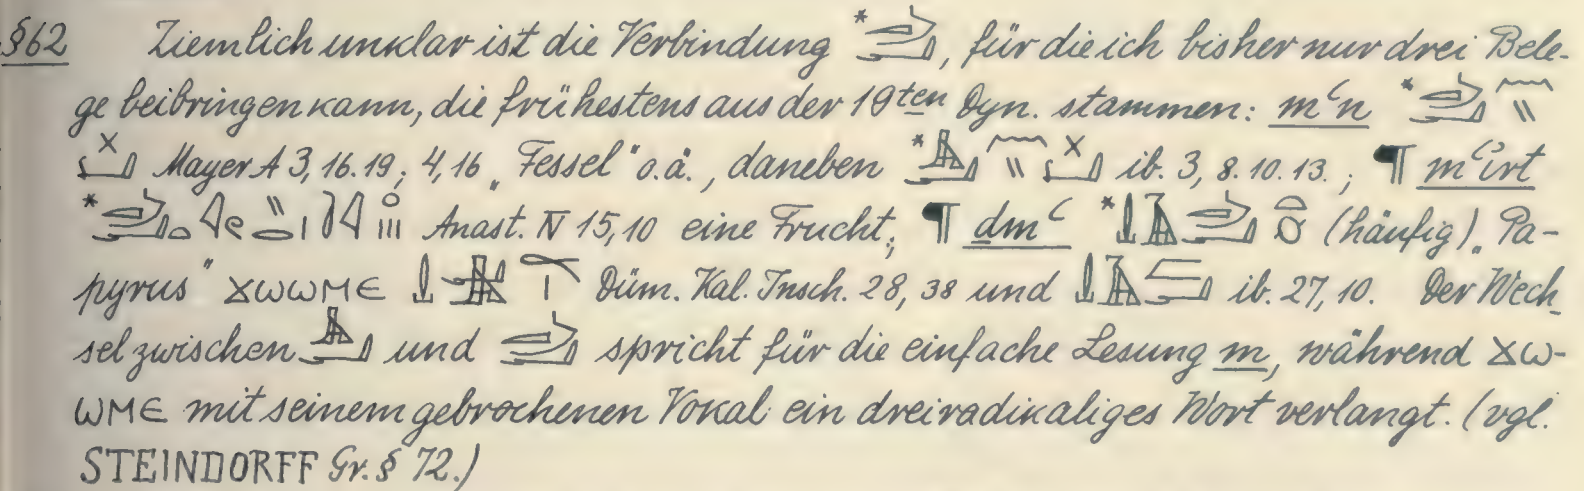 §62 Ziemlich unklar ist die Verbindung *, für die ich bisher nur drei Bele-
ge beibringen kann, die frühestens aus der 19ten Dyn. stammen: mꜥn *
Mayer A 3, 16. 19; 4, 16 „Fessel" o.ä., daneben * ib. 3, 8. 10. 13.; ¶ mꜥỉrt
* Anast. IV 15, 10 eine Frucht; ¶ dmꜥ * (häufig) „Pa-
pyrus" ϪⲰⲰⲘⲈ Düm. Kal. Insch. 28, 38 und ib. 27, 10. Der Wech-
sel zwischen und spricht für die einfache Lesung m, während ϪⲰ-
ⲰⲘⲈ mit seinem gebrochenen Vokal ein dreiradikaliges Wort verlangt. (vgl.
STEINDORFF Gr. § 72.)